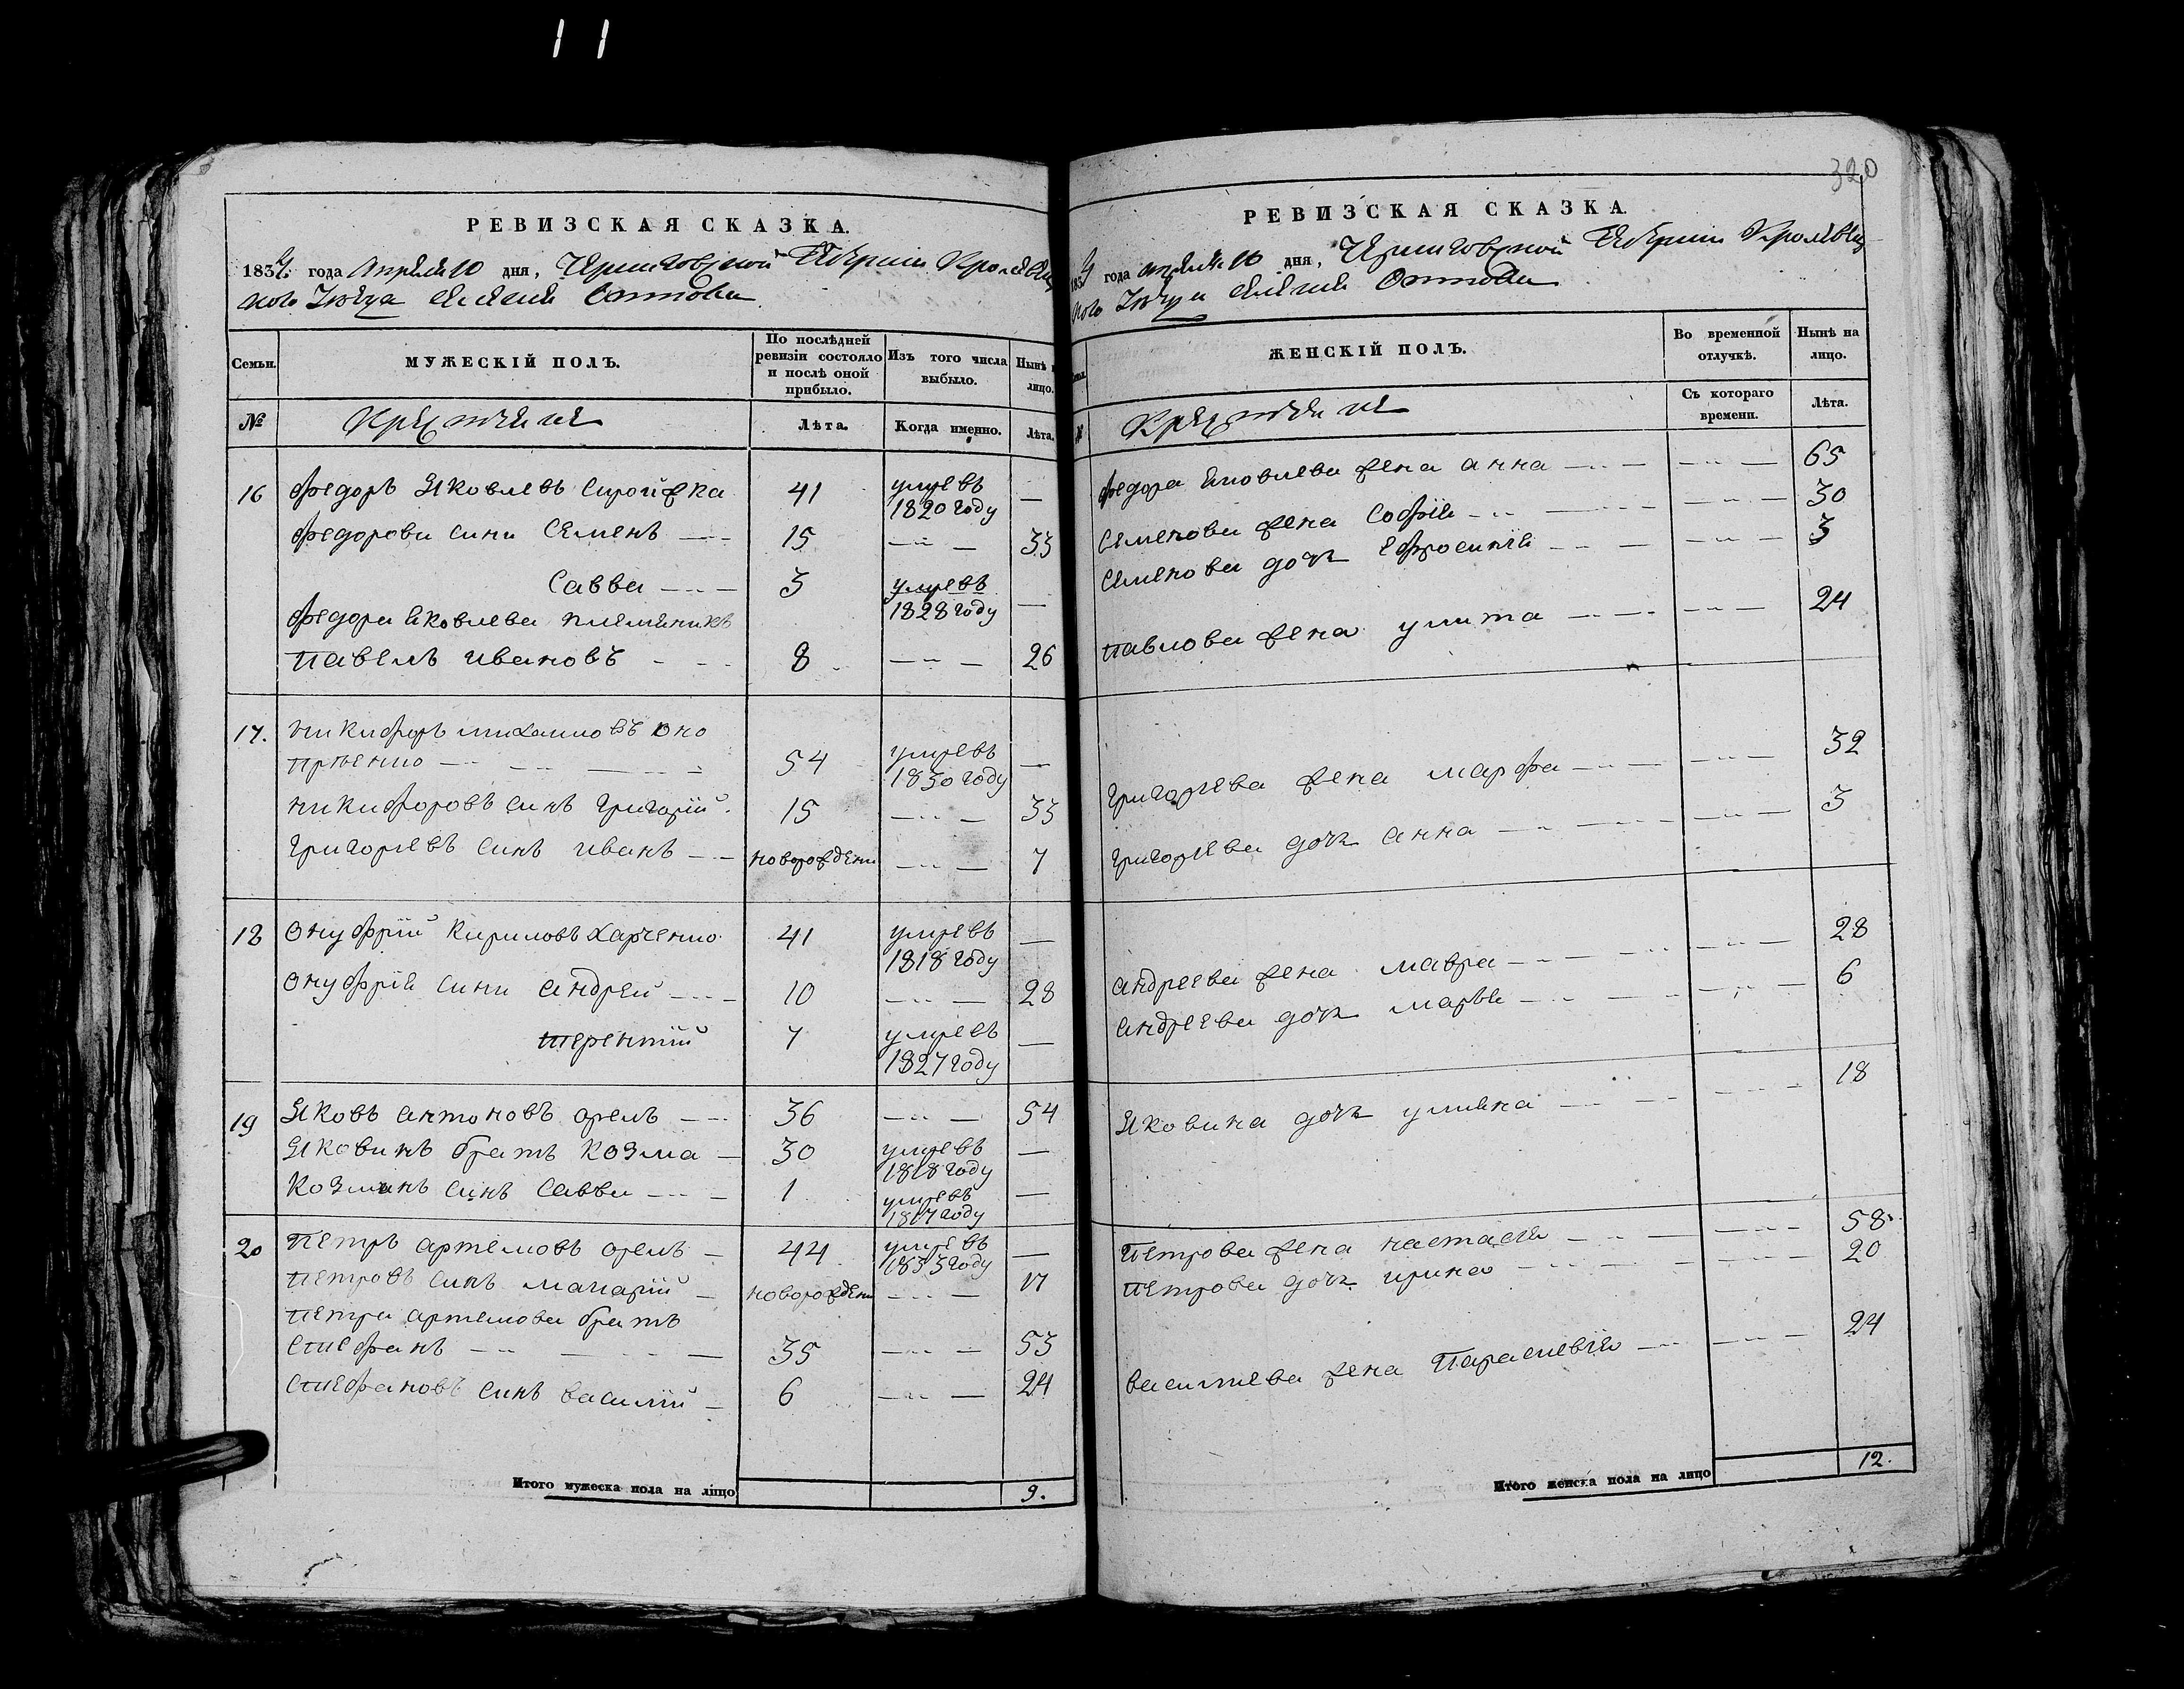 11
320
РЕВИЗСКАЯ СКАЗКА.
1834. года Апреля 10 дня, Черниговской Губернии Кролевец
кого Уезда селения
Семьи. МУЖЕСКІЙ ПОЛЪ. По послѣдней ревизіи состояло и послѣ оной прибыло. Изъ того числа выбыло. Нынѣ лицо.
№ Крестяне Лѣта. Когда именно. Лѣта.
16 Федоръ Яковлевъ 41 умревъ 1820 году —
Федорови сини Семенъ 15 — 33
Савва 3 умревъ 1828 году —
Федора Яковлева племеникъ
Павелъ Ивановъ 8 — 26
17. Никифоръ Михаиловъ Оно
приенко 54 умревъ 1830 году —
Никифоровъ синъ Григорій 15 — 33
Григориевъ синъ Иванъ новорождени — 7
18 Онуфрій Кириловъ Харченко 41 умревъ 1818 году —
Онуфрія сини Андрей 10 — 28
Терентій 7 умревъ 1827 году —
19 Яковъ Антоновъ Орелъ 36 — 54
Яковинъ братъ Козма 30 умревъ 1818 году —
Козминъ синъ Савва 1 умревъ 1817 году —
20 Петръ Артемовъ Орелъ 44 умревъ 1833 году —
Петровъ синъ Макарій новорождени — 17
Петра Артемова братъ
Стефанъ 35 — 53
Стефановъ синъ Василій 6 — 24
Итого мужеска пола на лицо 9.
РЕВИЗСКАЯ СКАЗКА.
1834 года Апреля 10 дня, Черниговской Губернии Кролевец
кого Уезда селения
ЖЕНСКІЙ ПОЛЪ. Во временной отлучкѣ. Нынѣ на лицо.
№ Крестяне Съ котораго времени. Лѣта.
Федора Яковлева жена Анна — 65
Семенова жена Софія — 30
Семенова дочь Ефросинія — 3
Павлова жена Улита — 24
Григорьева жена Марфа — 32
Григорьева дочь Анна — 3
Андреева жена Мавра — 28
Андреева дочь Марья — 6
Яковина дочь Улияна — 18
Петрова жена Настасія — 58
Петрова дочь Ирина — 20
Василиева жена Параскевія — 24
Итого женска пола на лицо 12.